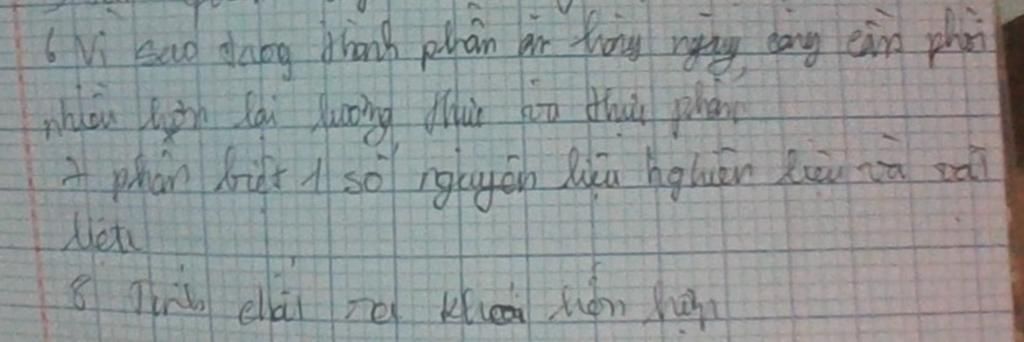 6 Vì sao trong thành phần ăn hàng ngày cũng cần phối
nhiều loại lương thực và thực phẩm
7 phân biệt 1 số nguyên liệu nhiên liệu và vật
liệu
8 Tính chất ra khỏi hỗn hợp